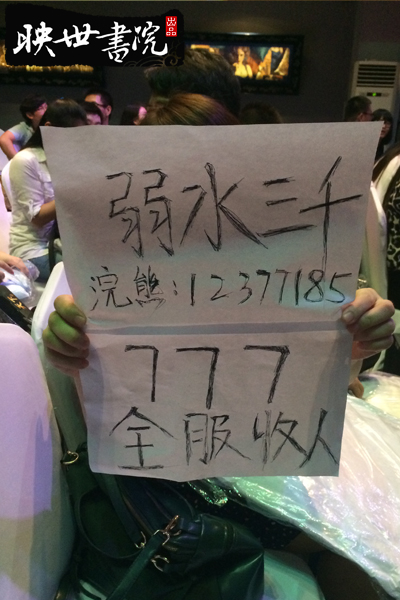 映世書院
出品
弱水三千
浣熊:12377185
777
全服收人